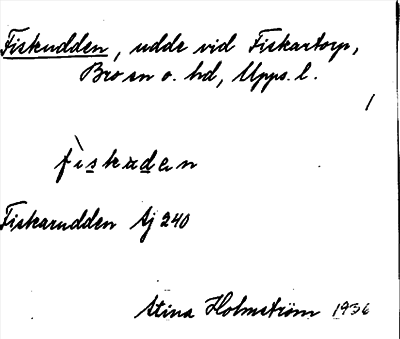 Fiskudden, udde vid Fiskartorp,
Bro sn o. hd, Upps. l.
fìskuden
Fiskarudden Aj 240
Stina Holmström 1936